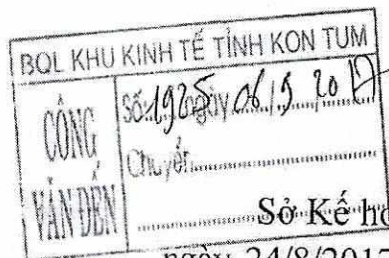 BQL KHU KINH TẾ TỈNH KON TUM
CÔNG VĂN ĐẾN
Số: 1925 ngày 06/9/2017
Chuyển
Sở Kế ho
ngày 24/8/2017